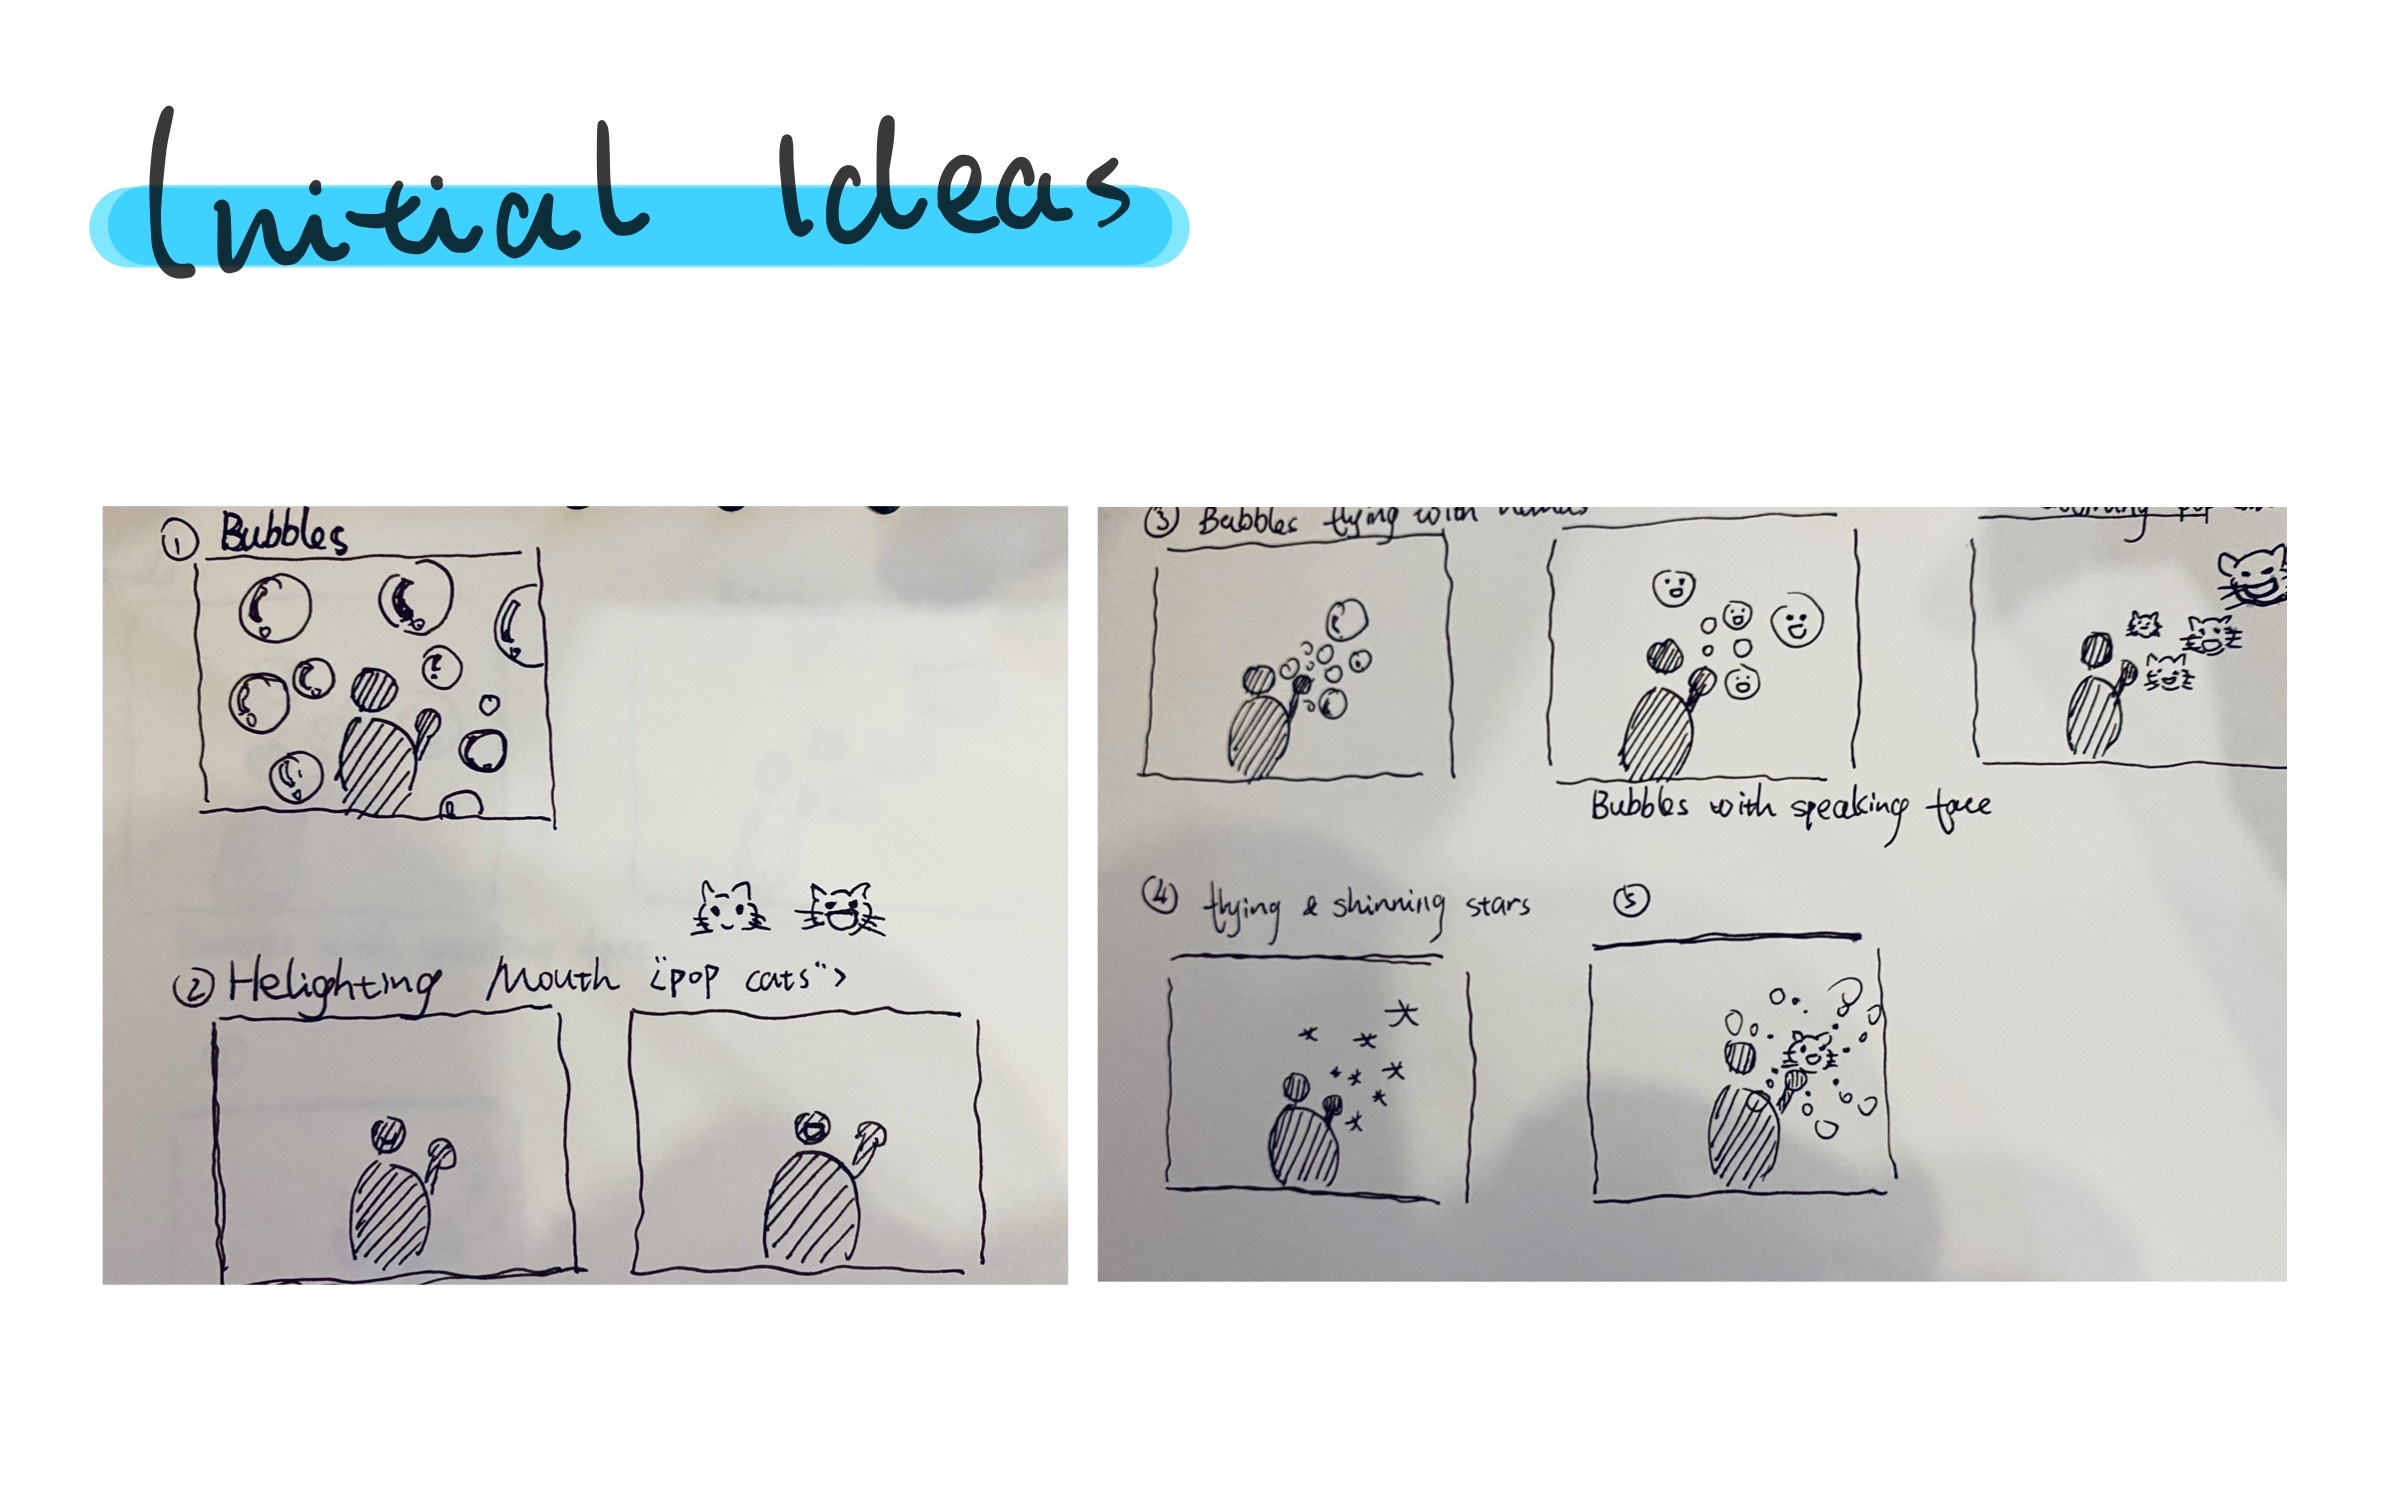 Initial Ideas
① Bubbles
② Helighting Mouth "pop cats">
③ Bubbles flying with
pop
Bubbles with speaking face
④ flying & shinning stars
⑤